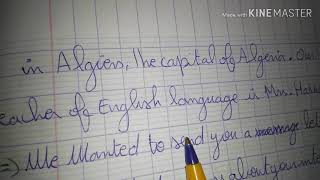 Made with KINEMASTER
in Algiers, the capital of Algeria. Our
eacher of English language is Mrs.
=) We Wanted to send you a message